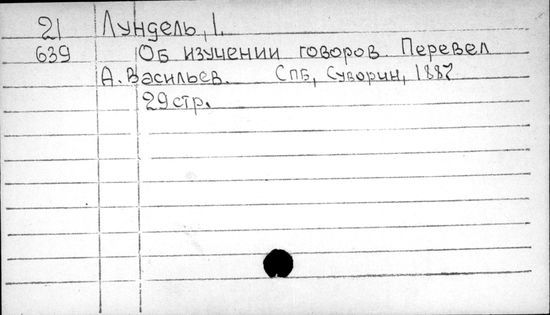 21 Лундель, I.
639 Об изучении говоров Перевел
А. Васильев. СПБ, Суворин, 1887
29 стр.